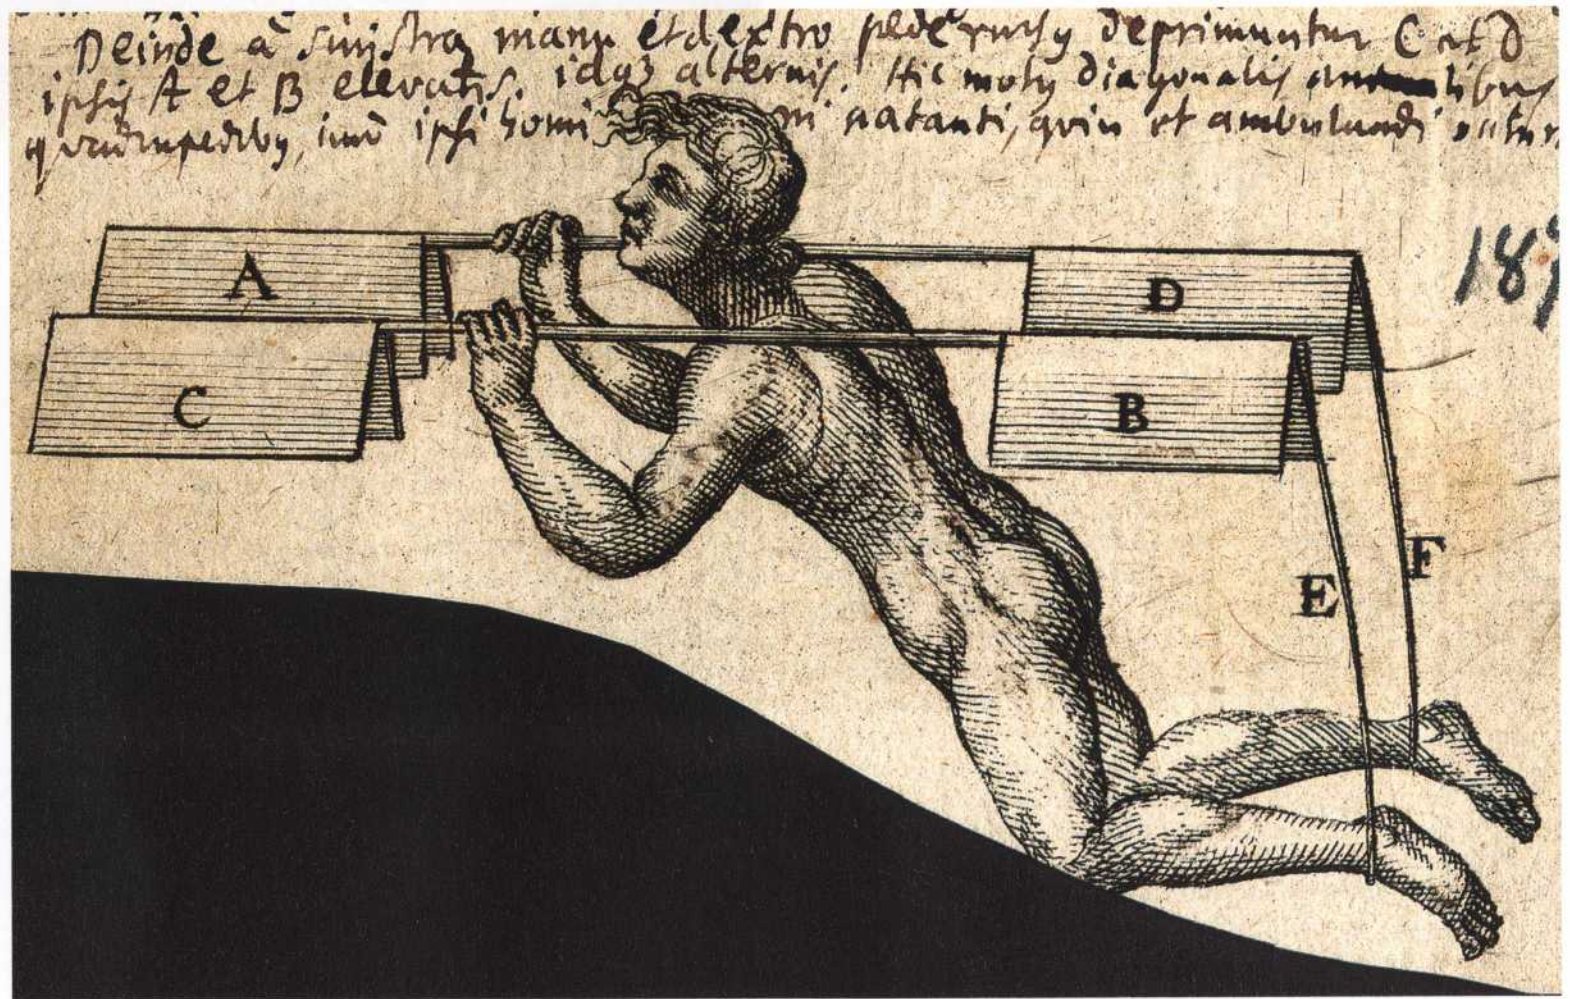 Deinde a sinistra manu et dextro pede rursu deprimuntur C et D
ipsis A et B elevatis. idqz alternis. Hic motu diagonalis libus
quadrupedibu, imo ipsi homi ni natanti, quin et ambulandi
187
A
D
C
B
F
E